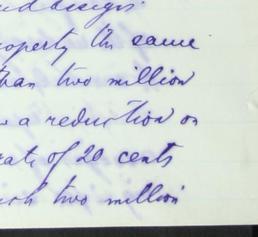 and assigns.
property the same
than two million
a reduction on
rate of 20 cents
two million